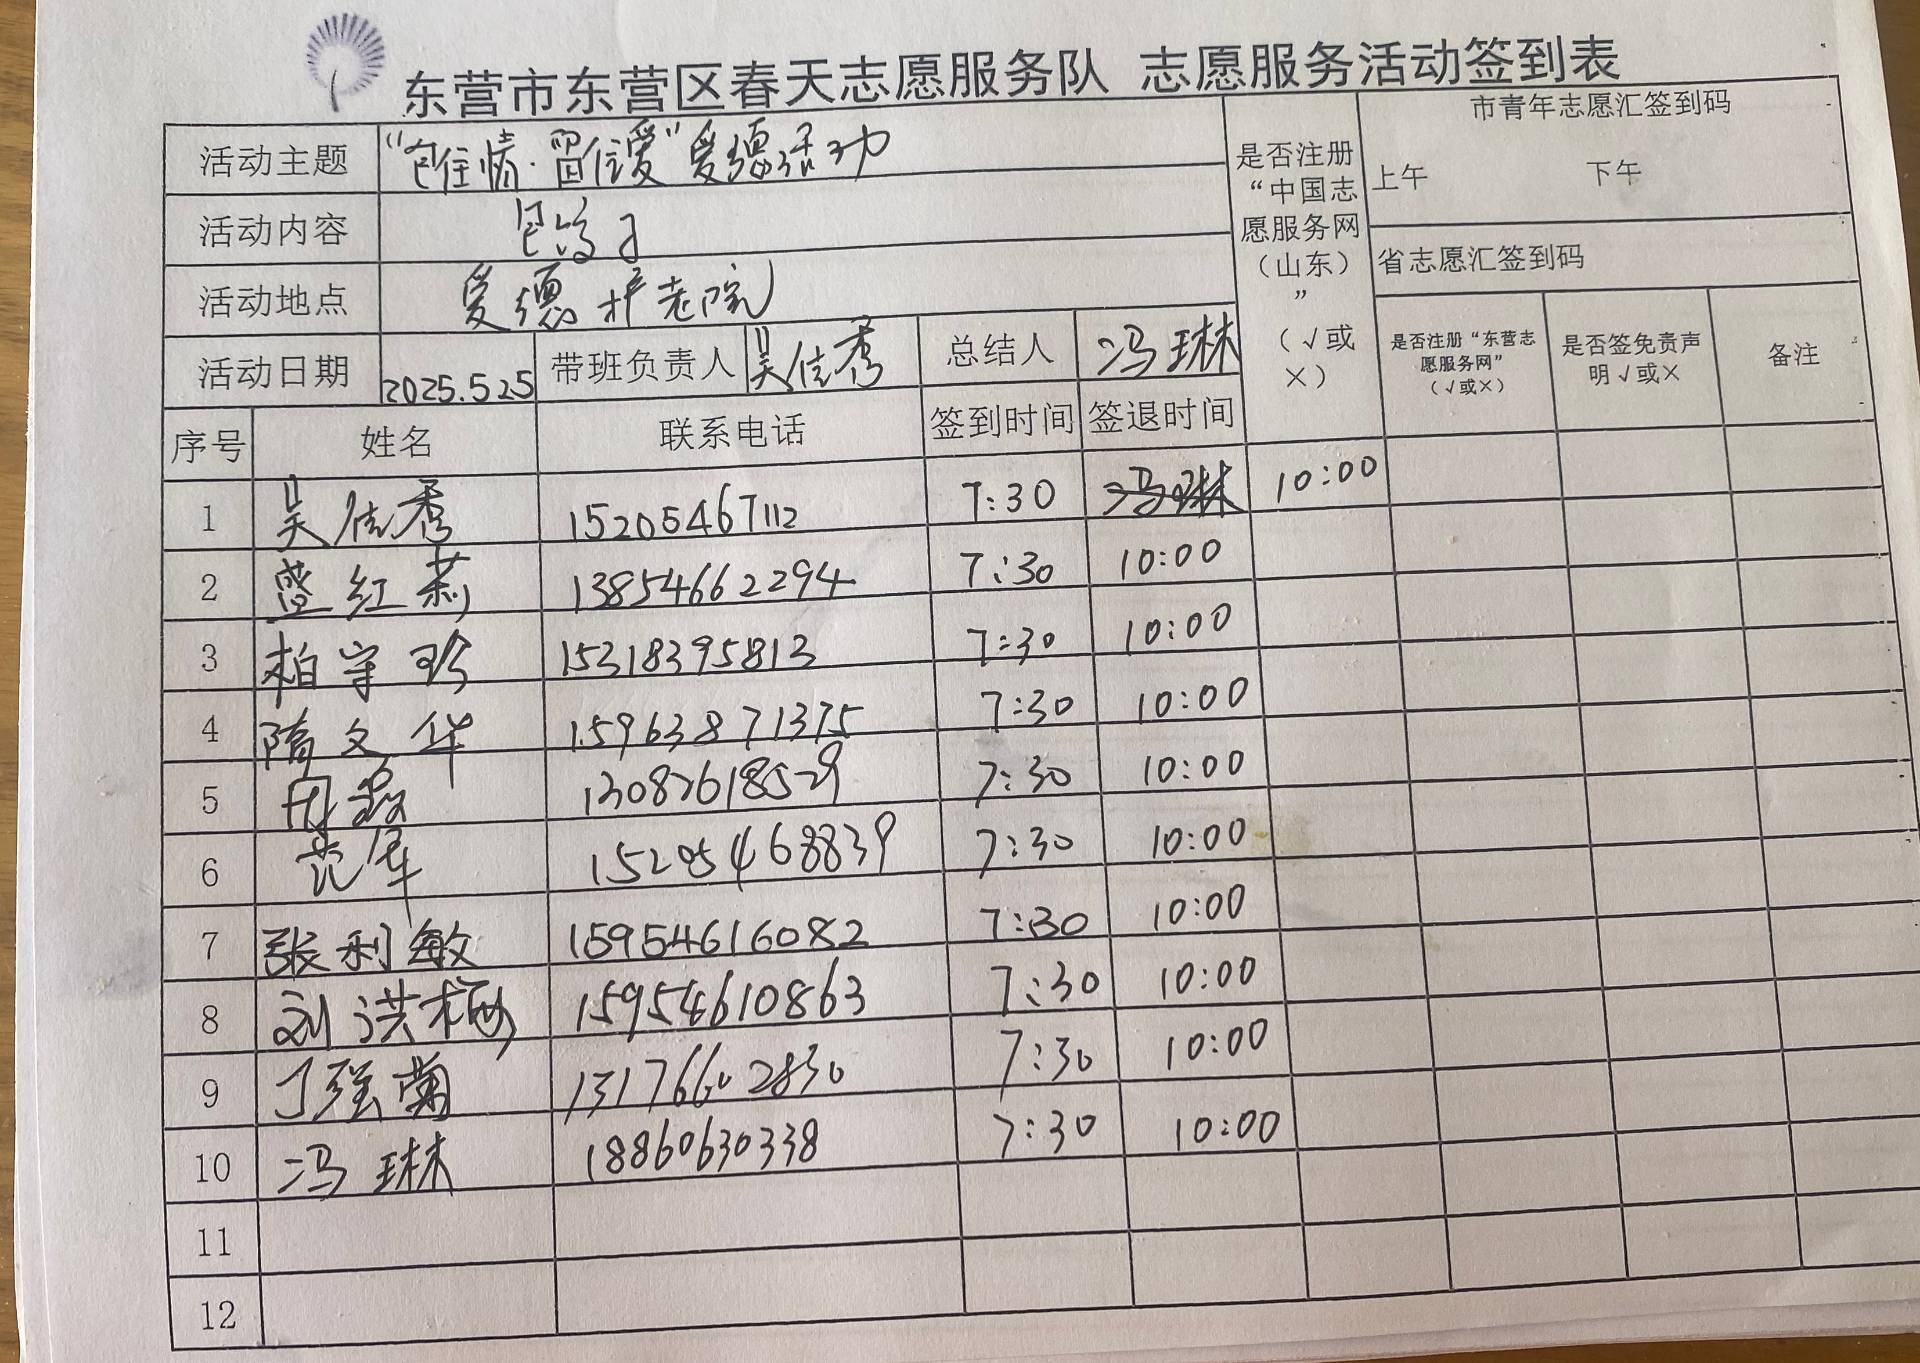 东营市东营区春天志愿服务队 志愿服务活动签到表
活动主题 “包住情·留住爱”爱德活动
是否注册“中国志愿服务网（山东）”（√或×）
市青年志愿汇签到码
上午 下午
活动内容 包饺子
省志愿汇签到码
活动地点 爱德护老院
活动日期 2025.5.25 带班负责人 吴信秀 总结人 冯琳
是否注册“东营志愿服务网”（√或×） 是否签免责声明√或× 备注
序号 姓名 联系电话 签到时间 签退时间
1 吴信秀 15205467112 7:30 冯琳 10:00
2 盛红莉 13854662294 7:30 10:00
3 柏守珍 15318395813 7:30 10:00
4 隋文华 15963871375 7:30 10:00
5 13082618529 7:30 10:00
6 范军 15205468839 7:30 10:00
7 张利敏 15954616082 7:30 10:00
8 刘洪梅 15954610863 7:30 10:00
9 丁强菊 13176602830 7:30 10:00
10 冯琳 18860630338 7:30 10:00
11
12